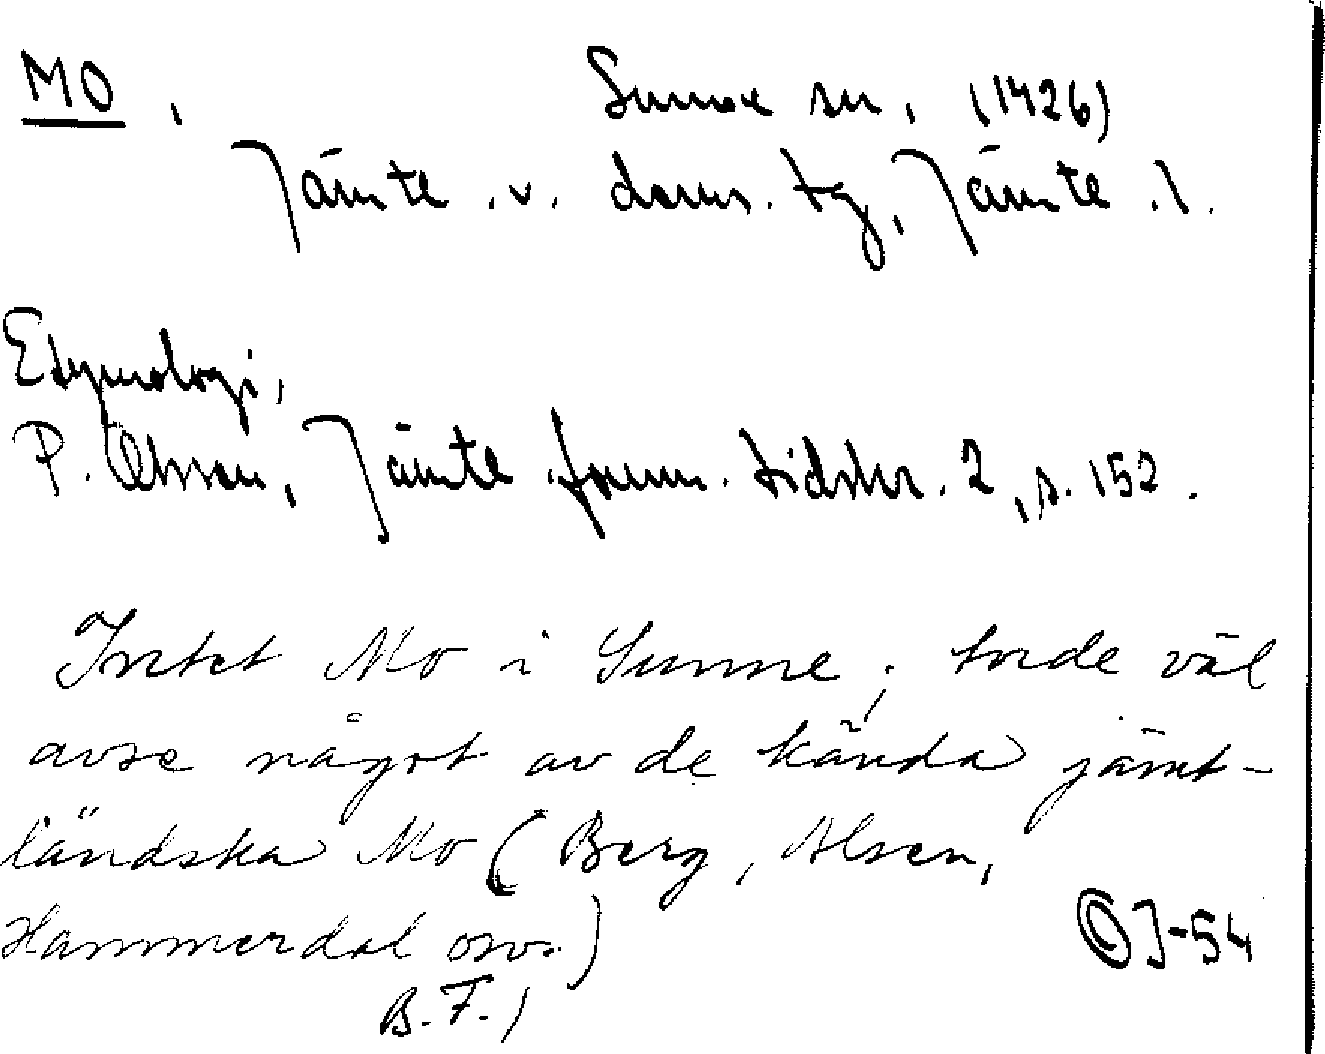 MO, Sunne sn, (1426)
Jämtl. v. doms. tg, Jämtl. l.
Etymologi,
P. Olsson, Jämtl. fornm. tidskr. 2, s. 152.
Intet Mo i Sunne; torde väl
avse något av de kända jämt-
ländska Mo (Berg, Alsen,
Hammerdal osv.)
B. F.)
OJ-54